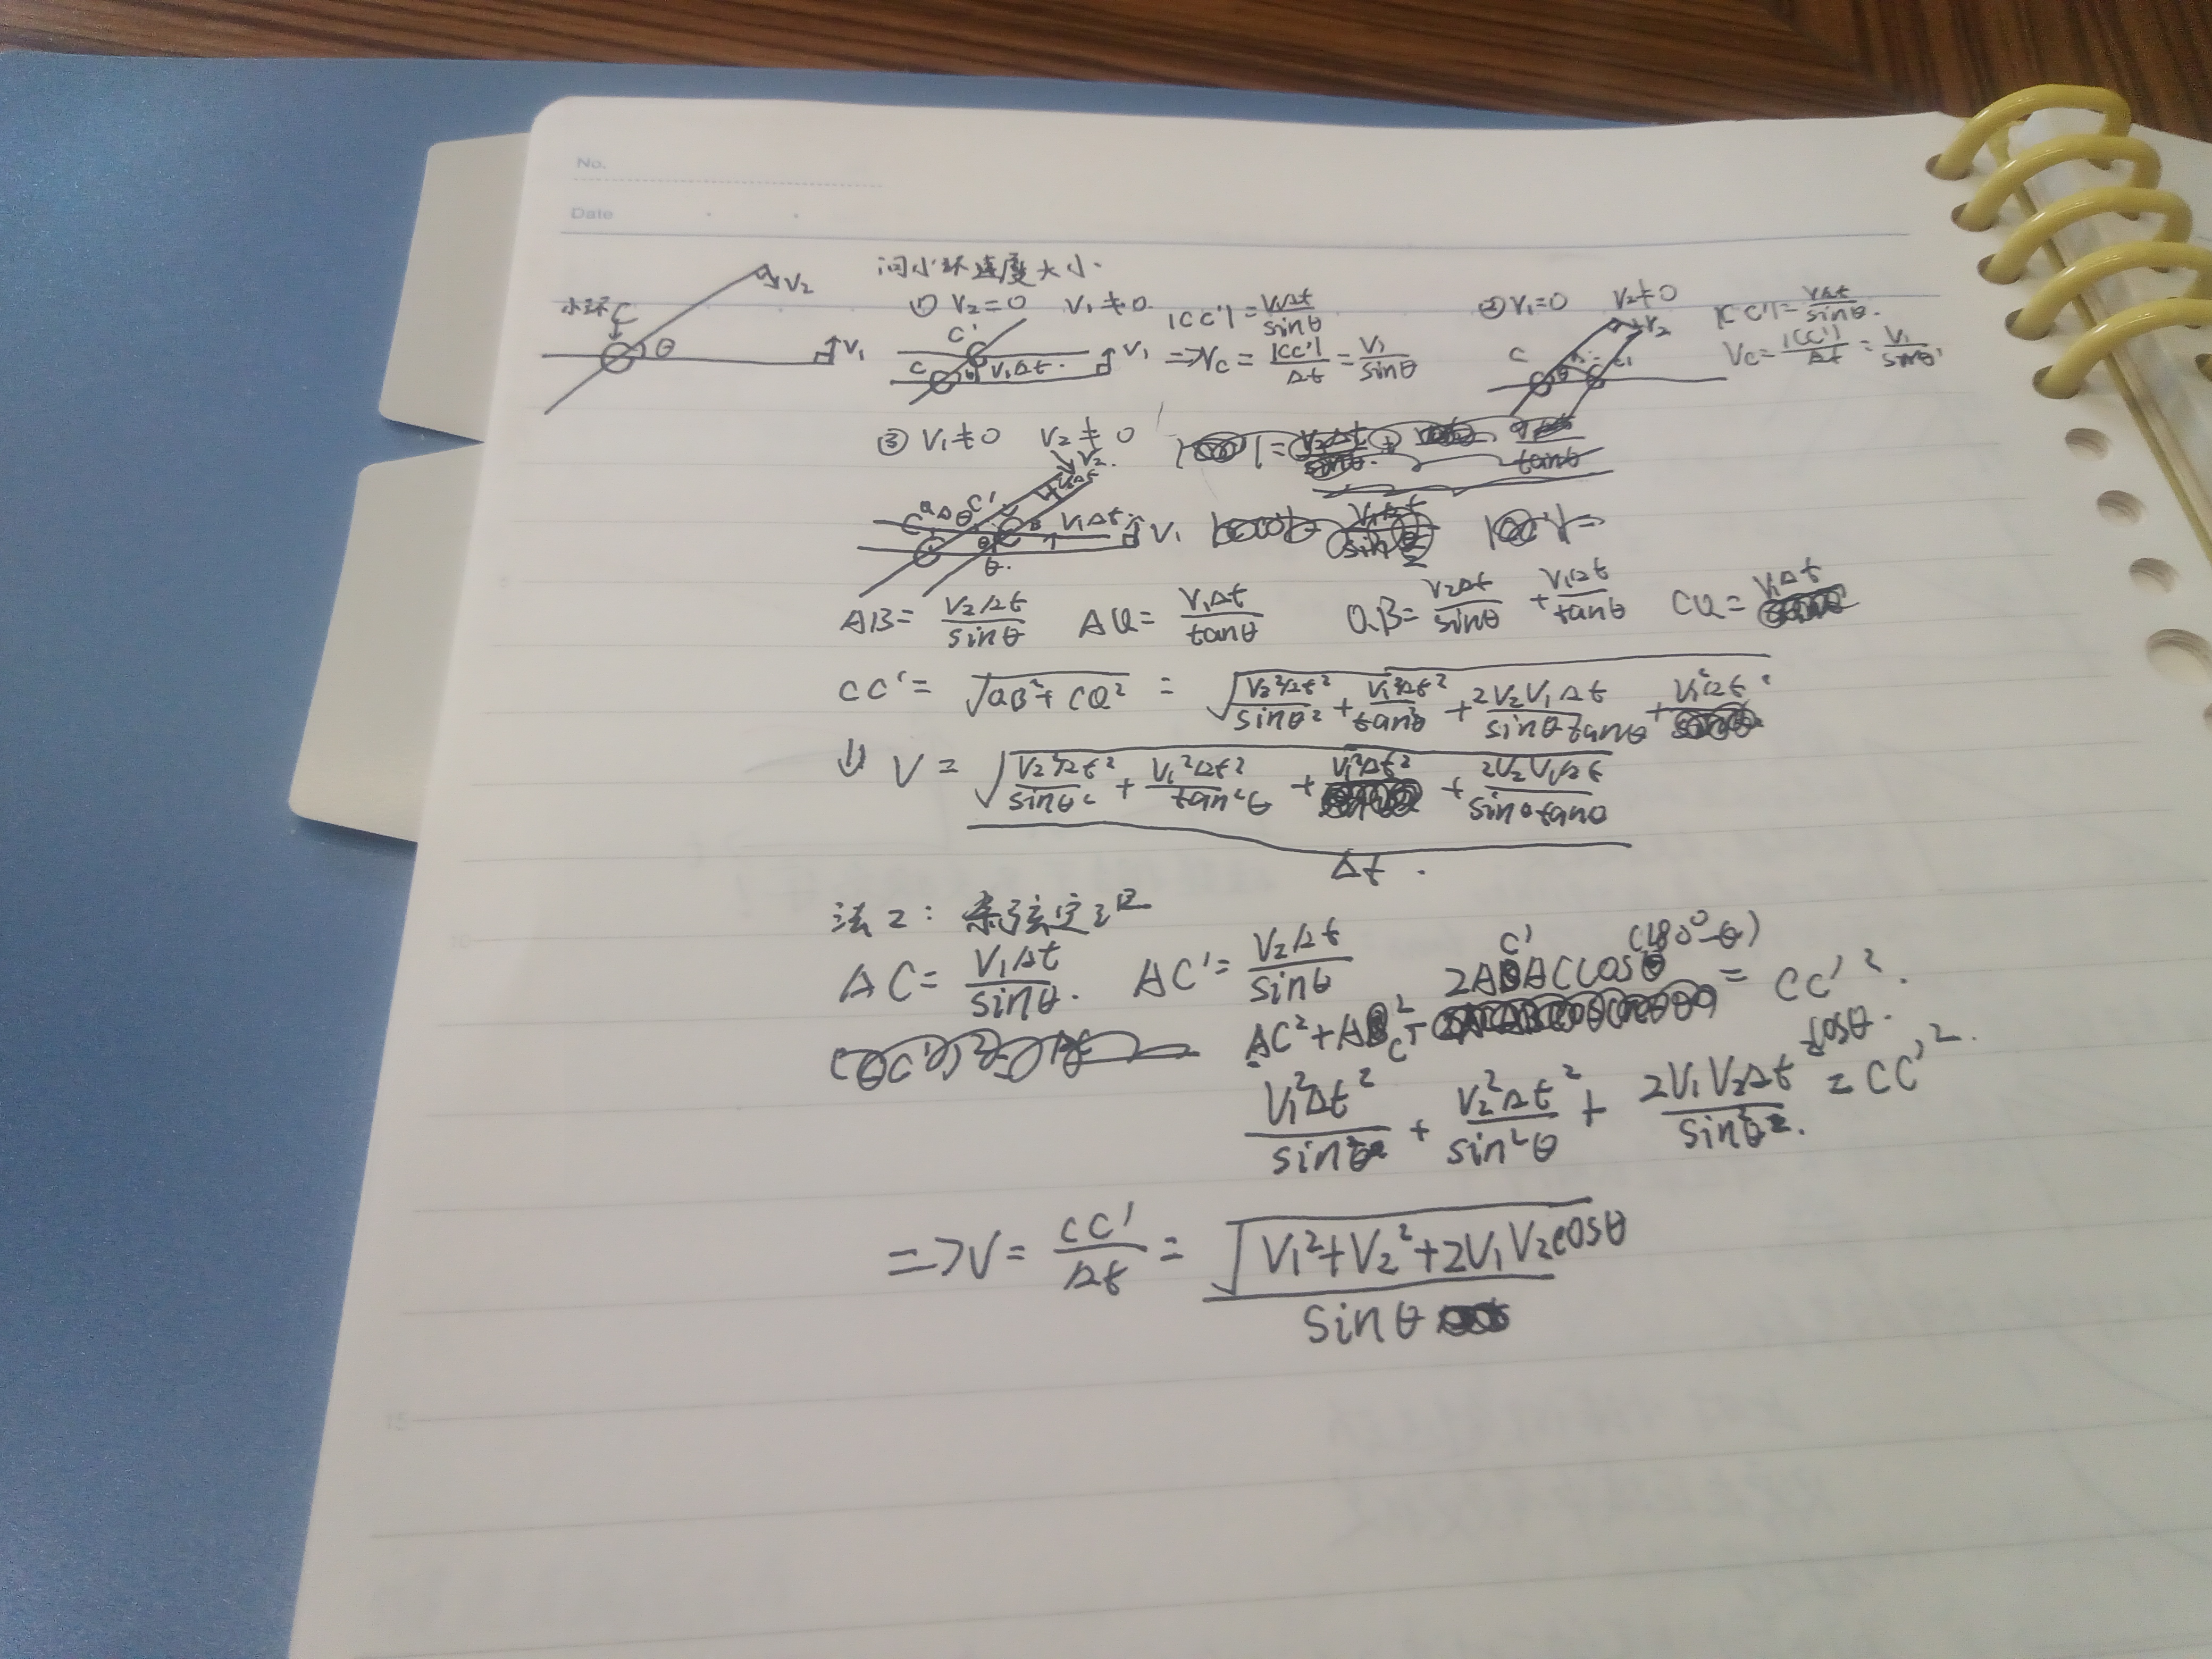 No.
Date
问小环速度大小.
小环C θ V₂ V₁
① V₂=0 V₁≠0. |CC'|=V₁Δt/sinθ
C' C θ V₁Δt. V₁ =>Vc=|CC'|/Δt=V₁/sinθ
② V₁=0 V₂≠0 |CC'|=VΔt/sinθ.
C θ V₂ Vc=|CC'|/Δt=V₁/sinθ
③ V₁≠0 V₂≠0
V₂ C' θ V₁Δt V₁ θ.
AB=V₂Δt/sinθ AQ=V₁Δt/tanθ QB=V₂Δt/sinθ+V₁Δt/tanθ CQ=V₁Δt
CC'=√(QB²+CQ²)=√(V₂²Δt²/sinθ²+V₁²Δt²/tan²θ+2V₂V₁Δt/sinθtanθ+V₁²Δt²)
⇓ V=√(V₂²Δt²/sinθ²+V₁²Δt²/tan²θ+V₁²Δt²+2V₂V₁Δt/sinθtanθ)/Δt.
法2: 余弦定理
AC=V₁Δt/sinθ. AC'=V₂Δt/sinθ
AC²+AC'²-2AC'ACcos(180°-θ)=CC'².
V₁²Δt²/sin²θ+V₂²Δt²/sin²θ+2V₁V₂Δt cosθ/sin²θ=CC'².
=>V=CC'/Δt=√(V₁²+V₂²+2V₁V₂cosθ)/sinθ